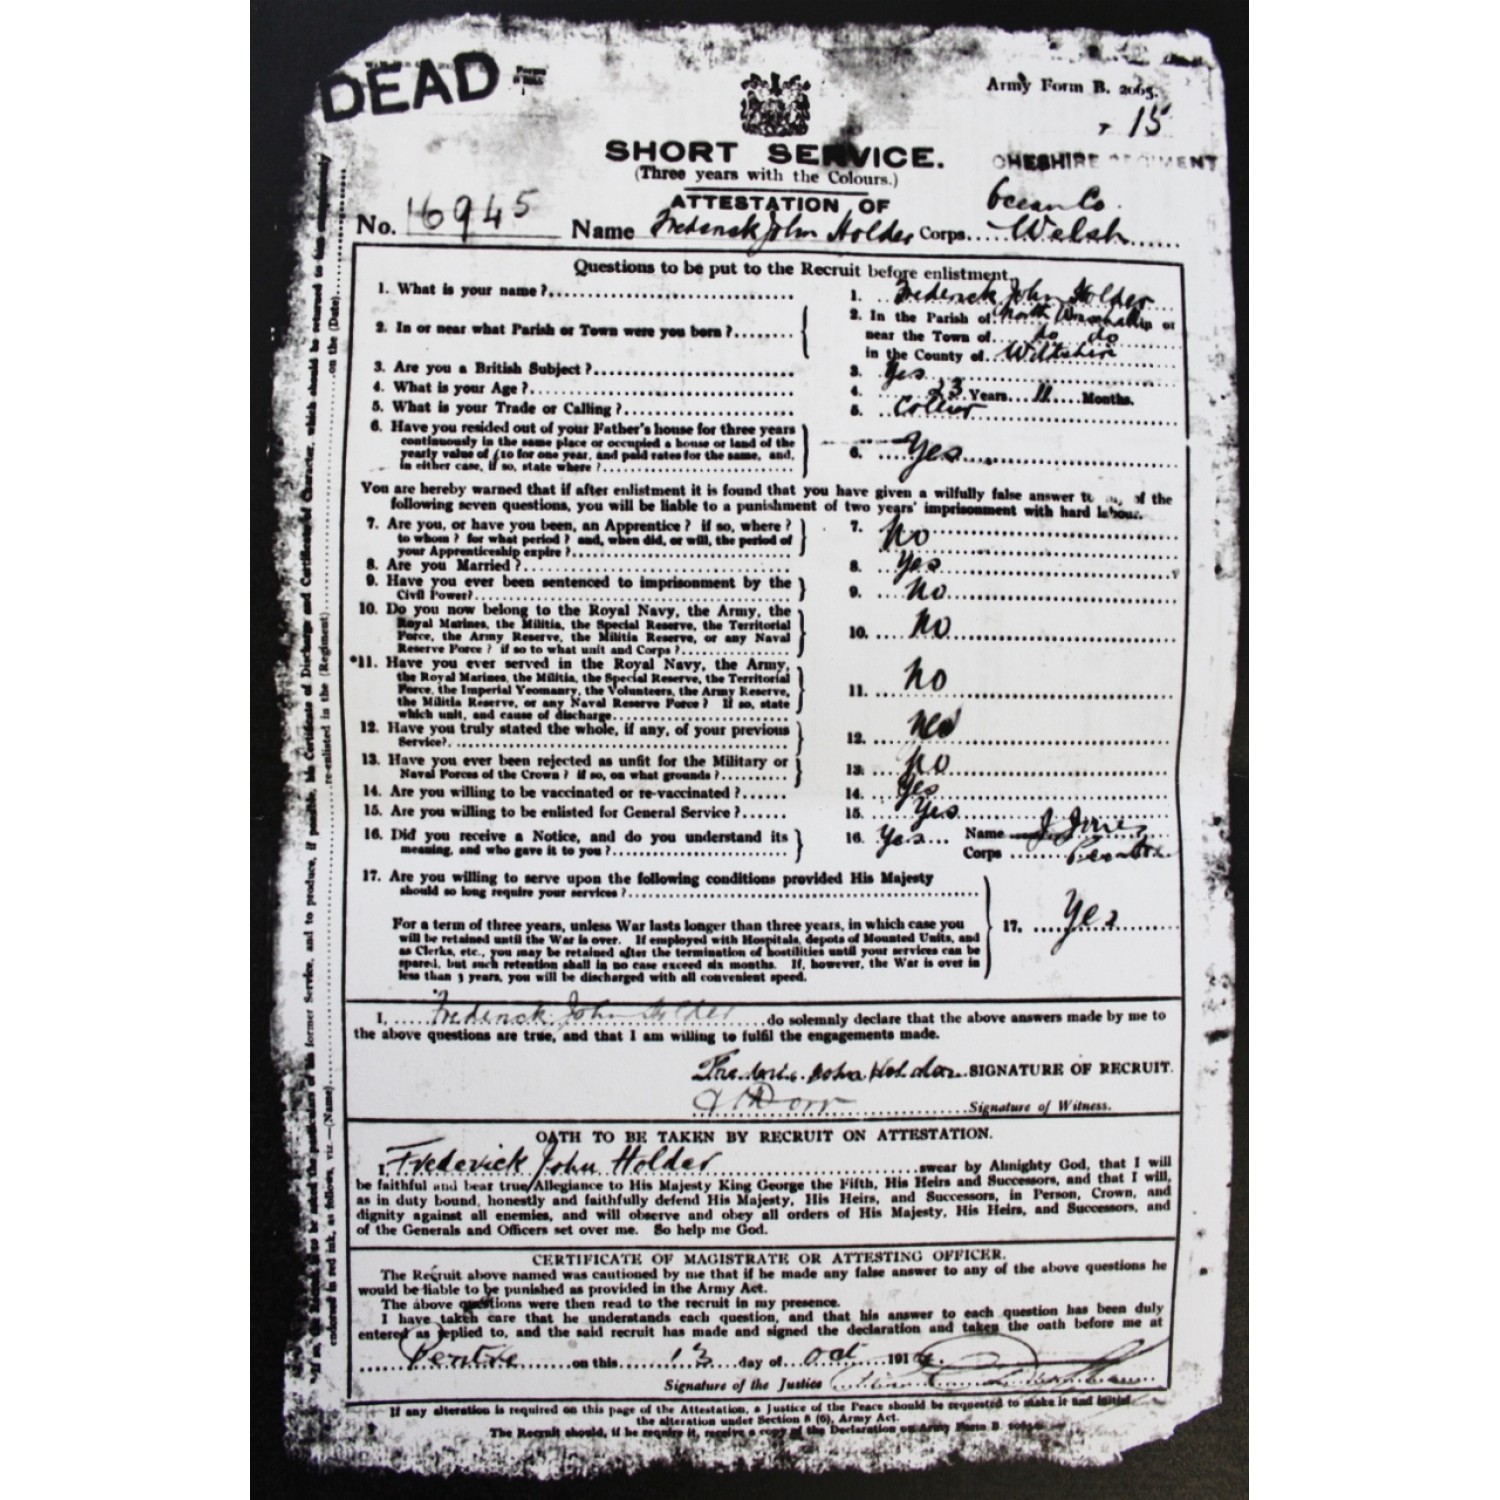 DEAD
Army Form B. 2065.
15
SHORT SERVICE.
(Three years with the Colours.)
CHESHIRE REGIMENT
ATTESTATION OF
Ocean Co.
No. 16945 Name Frederick John Holder Corps Welsh
Questions to be put to the Recruit before enlistment.
1. What is your name? 1. Frederick John Holder
2. In or near what Parish or Town were you born? 2. In the Parish of North in or
near the Town of do do
in the County of Wiltshire
3. Are you a British Subject? 3. Yes
4. What is your Age? 4. 23 Years 11 Months.
5. What is your Trade or Calling? 5. Collier
6. Have you resided out of your Father's house for three years
continuously in the same place or occupied a house or land of the
yearly value of £10 for one year, and paid rates for the same, and,
in either case, if so, state where? 6. Yes
You are hereby warned that if after enlistment it is found that you have given a wilfully false answer to of the
following seven questions, you will be liable to a punishment of two years' imprisonment with hard labour.
7. Are you, or have you been, an Apprentice? if so, where? 7. No
to whom? for what period? and, when did, or will, the period of
your Apprenticeship expire?
8. Are you Married? 8. Yes
9. Have you ever been sentenced to imprisonment by the 9. No
Civil Power?
10. Do you now belong to the Royal Navy, the Army, the
Royal Marines, the Militia, the Special Reserve, the Territorial
Force, the Army Reserve, the Militia Reserve, or any Naval 10. No
Reserve Force? if so to what unit and Corps?
*11. Have you ever served in the Royal Navy, the Army,
the Royal Marines, the Militia, the Special Reserve, the Territorial
Force, the Imperial Yeomanry, the Volunteers, the Army Reserve, 11. No
the Militia Reserve, or any Naval Reserve Force? If so, state
which unit, and cause of discharge
12. Have you truly stated the whole, if any, of your previous 12.
Service?
13. Have you ever been rejected as unfit for the Military or 13. No
Naval Forces of the Crown? if so, on what grounds?
14. Are you willing to be vaccinated or re-vaccinated? 14. Yes
15. Are you willing to be enlisted for General Service? 15. Yes
16. Did you receive a Notice, and do you understand its 16. Yes Name J Jones
meaning, and who gave it to you? Corps Pentre
17. Are you willing to serve upon the following conditions provided His Majesty
should so long require your services?
For a term of three years, unless War lasts longer than three years, in which case you 17. Yes
will be retained until the War is over. If employed with Hospitals, depots of Mounted Units, and
as Clerks, etc., you may be retained after the termination of hostilities until your services can be
spared, but such retention shall in no case exceed six months. If, however, the War is over in
less than 3 years, you will be discharged with all convenient speed.
I, Frederick John Holder do solemnly declare that the above answers made by me to
the above questions are true, and that I am willing to fulfil the engagements made.
John Holder SIGNATURE OF RECRUIT.
Signature of Witness.
OATH TO BE TAKEN BY RECRUIT ON ATTESTATION.
I, Frederick John Holder swear by Almighty God, that I will
be faithful and bear true Allegiance to His Majesty King George the Fifth, His Heirs and Successors, and that I will,
as in duty bound, honestly and faithfully defend His Majesty, His Heirs, and Successors, in Person, Crown, and
dignity against all enemies, and will observe and obey all orders of His Majesty, His Heirs, and Successors, and
of the Generals and Officers set over me. So help me God.
CERTIFICATE OF MAGISTRATE OR ATTESTING OFFICER.
The Recruit above named was cautioned by me that if he made any false answer to any of the above questions he
would be liable to be punished as provided in the Army Act.
The above questions were then read to the recruit in my presence.
I have taken care that he understands each question, and that his answer to each question has been duly
entered as replied to, and the said recruit has made and signed the declaration and taken the oath before me at
Pentre on this 13 day of Oct 191
Signature of the Justice
If any alteration is required on this page of the Attestation, a Justice of the Peace should be requested to make it and initial
the alteration under Section 8 (6), Army Act.
The Recruit should, if he require it, receive a copy of the Declaration on Army Form B.